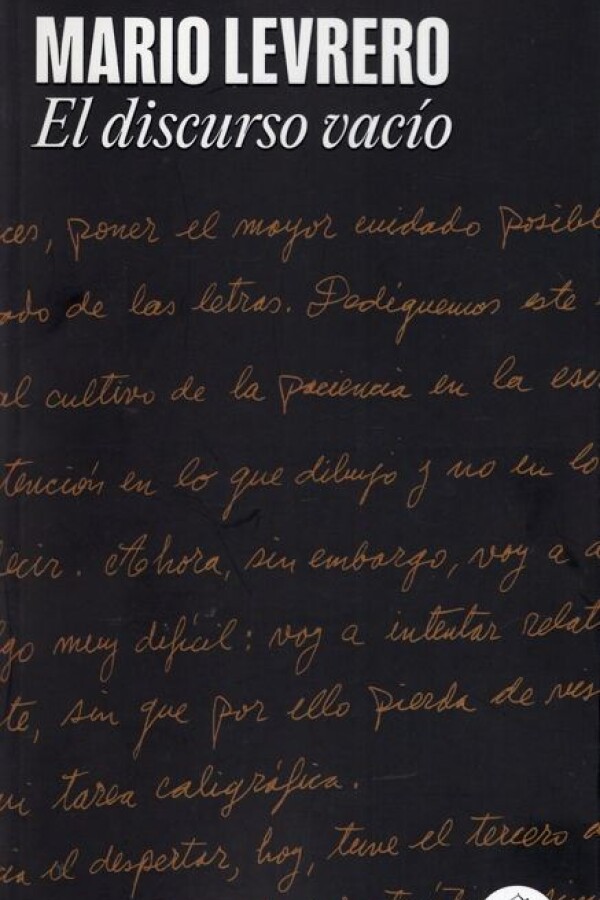 MARIO LEVRERO
El discurso vacío
ces, poner el mayor cuidado posibl
ado de las letras. Dediquemos este
al cultivo de la paciencia en la esc
tención en lo que dibujo y no en lo
decir. Ahora, sin embargo, voy a a
lgo muy difícil: voy a intentar relat
te, sin que por ello pierda de vis
mi tarea caligráfica.
cia el despertar, hoy, tuve el tercero d